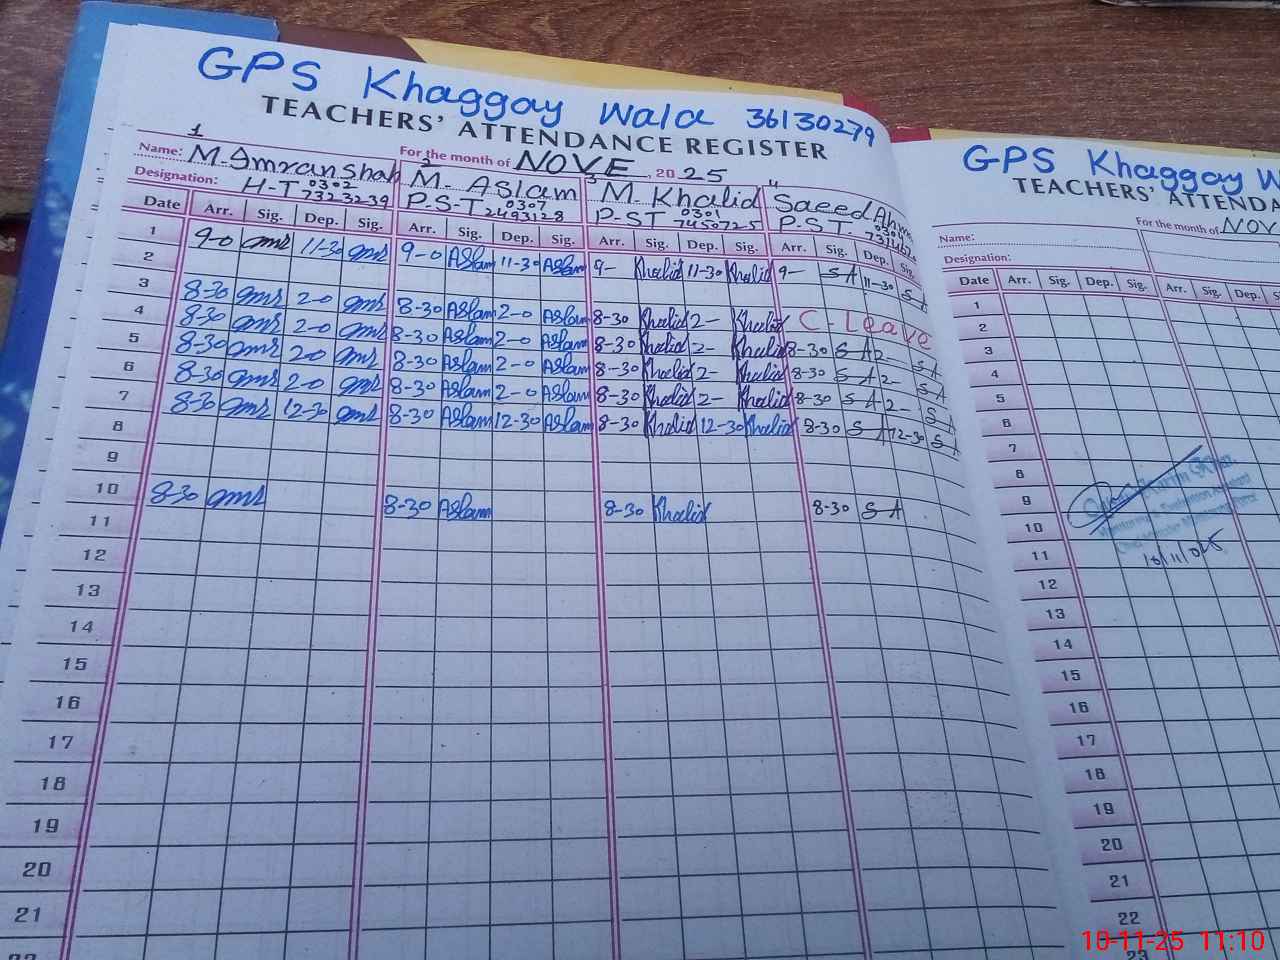 GPS Khaggay Wala 36130279
TEACHERS' ATTENDANCE REGISTER
For the month of NOVE, 20 25
1 2 3 4
Name: M-Imranshah M. Aslam M. Khalid Saeed
Designation: H-T 0302 7323239 P.S-T 0307 2493128 P-ST 0301 7450725 P.S.T.
Date Arr. Sig. Dep. Sig. Arr. Sig. Dep. Sig. Arr. Sig. Dep. Sig. Arr. Sig. Dep. Sig.
1 9-0 11-30 9-0 Aslam 11-30 Aslam 9- Khalid 11-30 Khalid 9- SA 11-30 SA
2
3 8-30 2-0 8-30 Aslam 2-0 Aslam 8-30 Khalid 2- Khalid C-Leave
4 8-30 2-0 8-30 Aslam 2-0 Aslam 8-30 Khalid 2- Khalid 8-30 SA 2- SA
5 8-30 2-0 8-30 Aslam 2-0 Aslam 8-30 Khalid 2- Khalid 8-30 SA 2- SA
6 8-30 2-0 8-30 Aslam 2-0 Aslam 8-30 Khalid 2- Khalid 8-30 SA 2- S
7 8-30 12-30 8-30 Aslam 12-30 Aslam 8-30 Khalid 12-30 Khalid 8-30 SA 12-30 SA
8
9
10 8-30 8-30 Aslam 8-30 Khalid 8-30 SA
11
12
13
14
15
16
17
18
19
20
21
22
GPS Khaggay W
TEACHERS' ATTENDA
For the month of NOV
Name:
Designation:
Date Arr. Sig. Dep. Sig. Arr. Sig. Dep.
1
2
3
4
5
6
7
8
9
10
11
12
13
14
15
16
17
18
19
20
21
22
23
10-11-25 11:10